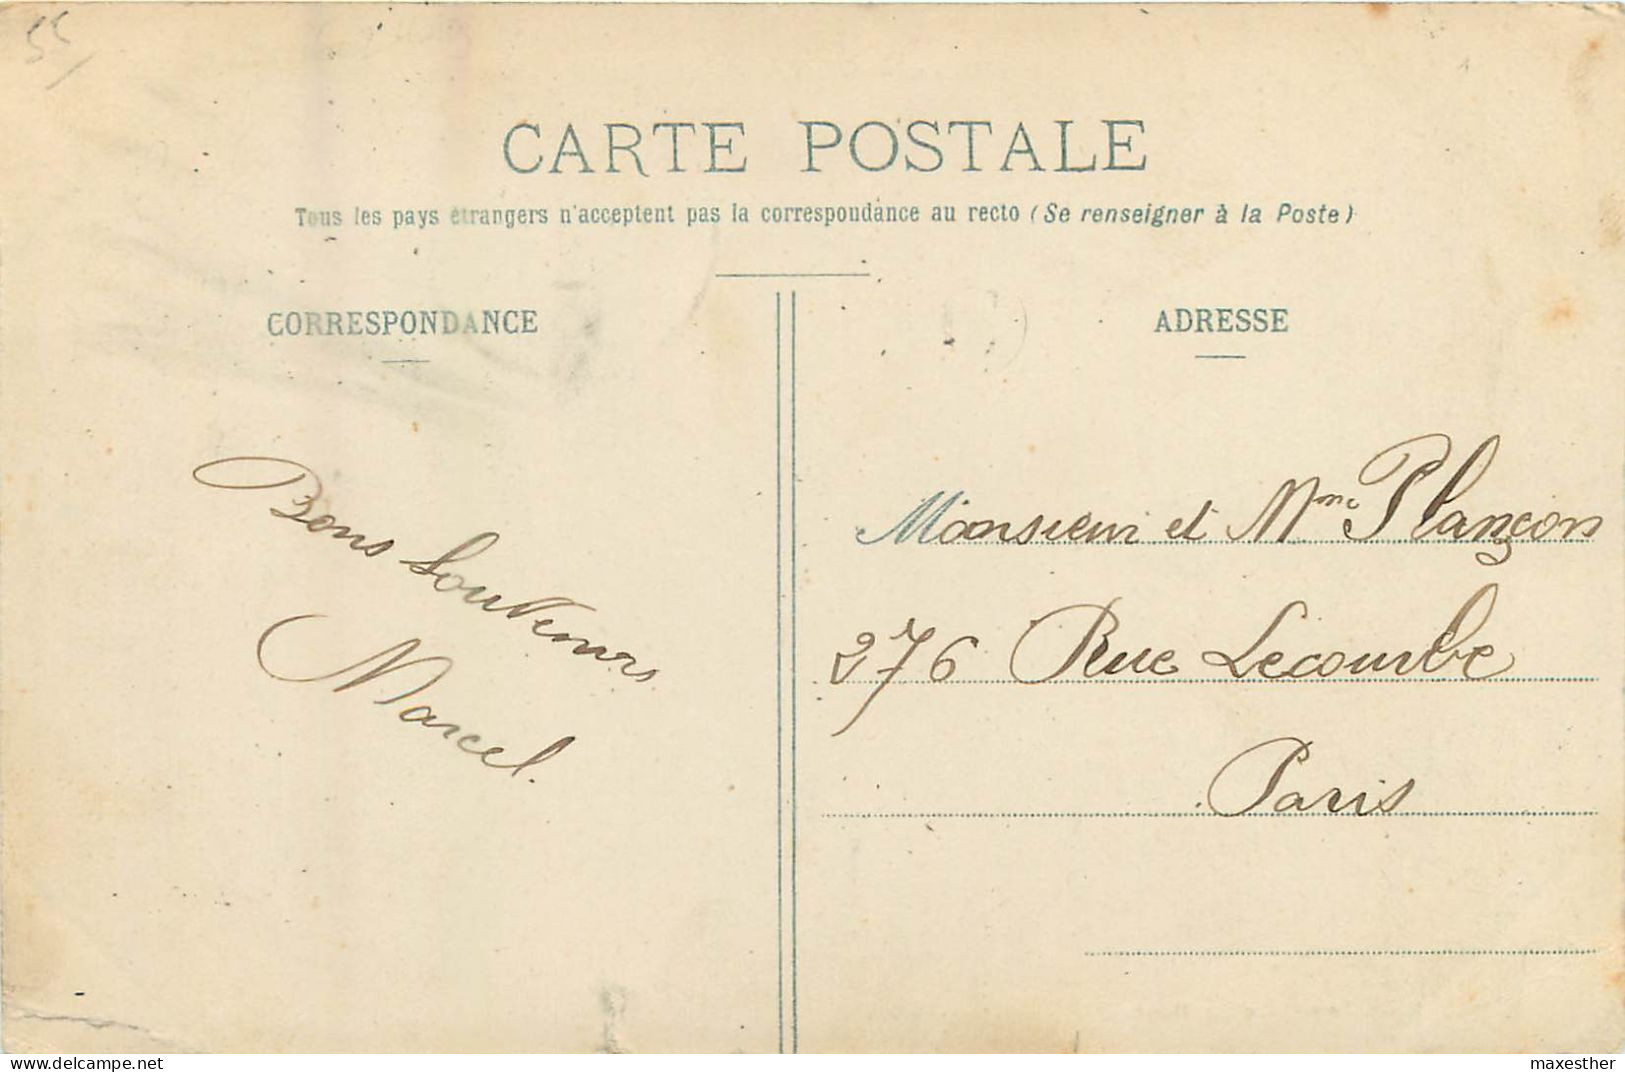 55
CARTE POSTALE
Tous les pays étrangers n'acceptent pas la correspondance au recto (Se renseigner à la Poste)
CORRESPONDANCE
Bons Souvenirs
Marcel.
ADRESSE
Monsieur et Mme Plançon
276 Rue Lecourbe
Paris
delcampe.net
maxesther